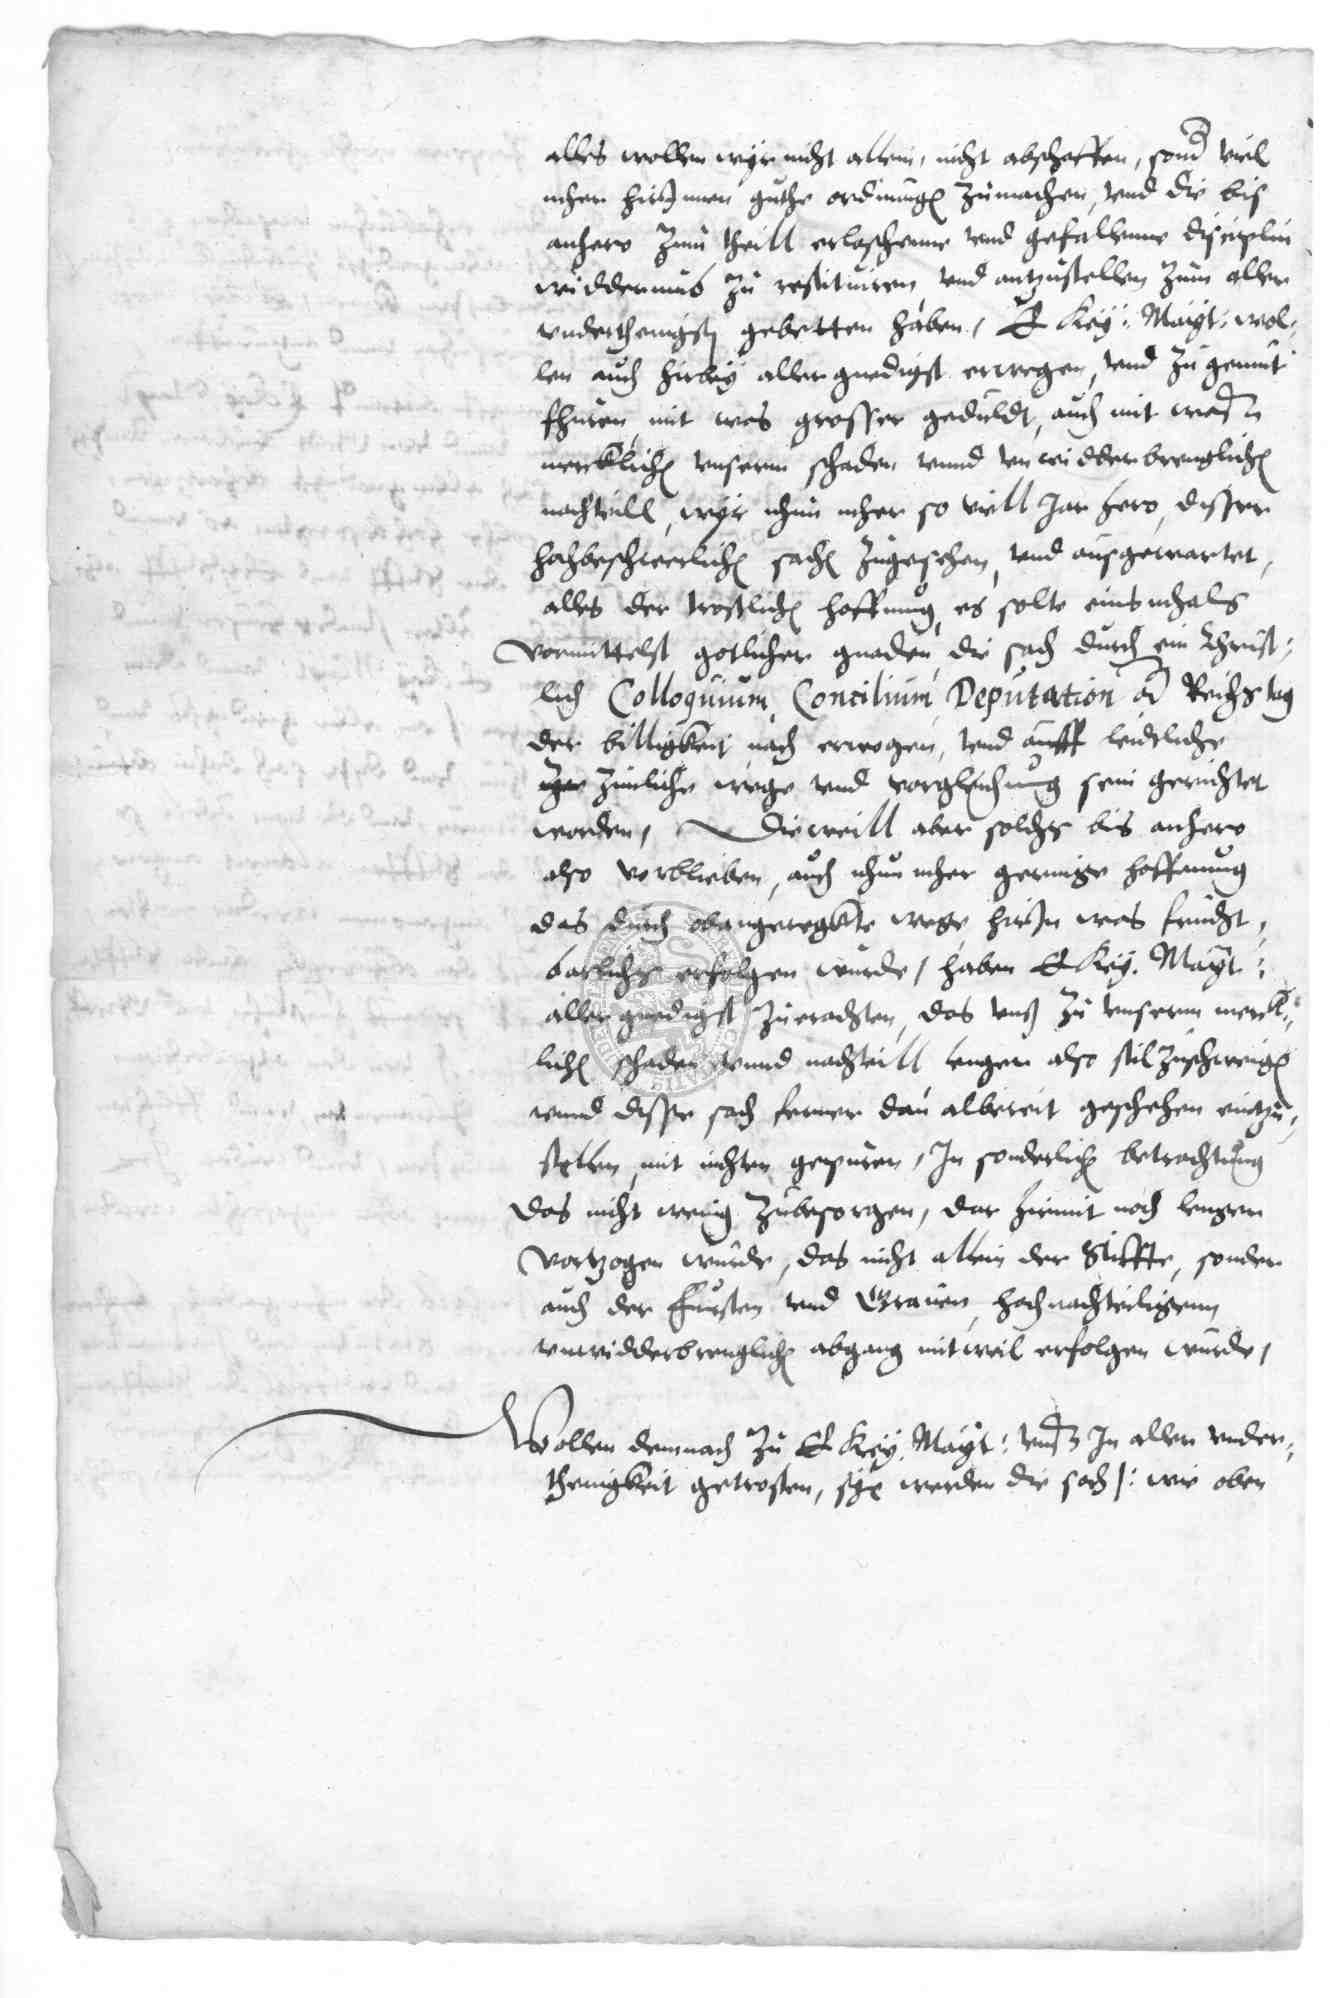 alles wollen wyr nicht allein, nicht abschaffen, sond viel
mher hirInnen guthe ordnung zumachen, vnd die bis
anhero zum theill erloschenne vnd gefallenne disciplin
widderumb zu restituiren vnd antzustellen zum aller
vnderthenigst gebetten haben, E Key: Mayt: wol:
len auch hirbey allergnedigst erwegen, vnd zu gemut
fhuren mit was grosser geduldt, auch mit was
mercklich vnserm schaden vnnd vnwidderbrenglich
nachteill, wyr nhun mher so viell Jar hero, disser
hochbeschwerlich sach zugesehen, vnd ausgewartet,
alles der trostlich hoffnung, es solte eins mhals
vormittelst gotlicher gnaden, die sach durch ein Christ:
lich Colloquium, Concilium, Deputation od Reichstag
der billigkeit nach erwogen, vnd auff leidtliche
zimliche wege vnd vorgleichung sein gerichtet
worden, Dieweill aber solchs bis anhero
also vorblieben, auch nhun mher geringe hoffnung
das durch obangeregkte wege hirIn was frucht,
barlichs erfolgen wurde, haben E Key. Mayt:
allergnedigst zuerachten, das vns zu vnserm merck:
lich schaden vnnd nachteill lenger also stilzuschweig
vnnd disse sach ferner dan albereit geschehen eintzu:
stellen, mit nichten gepuren, In sonderlich betrachtung
das nicht wenig zubesorgen, dar hirmit noch lenger
vortzogen wurde, das nicht allein der Stiffte, sonder
auch der Fursten vnd Grauen, hochnachteiligenn
vnwidderbrenglich abgang mitweil erfolgen wurde,
Wollen demnach zu E Key. Mayt: vns In aller vnder:
thenigkeit getrosten, sye werden die sach /: wie oben